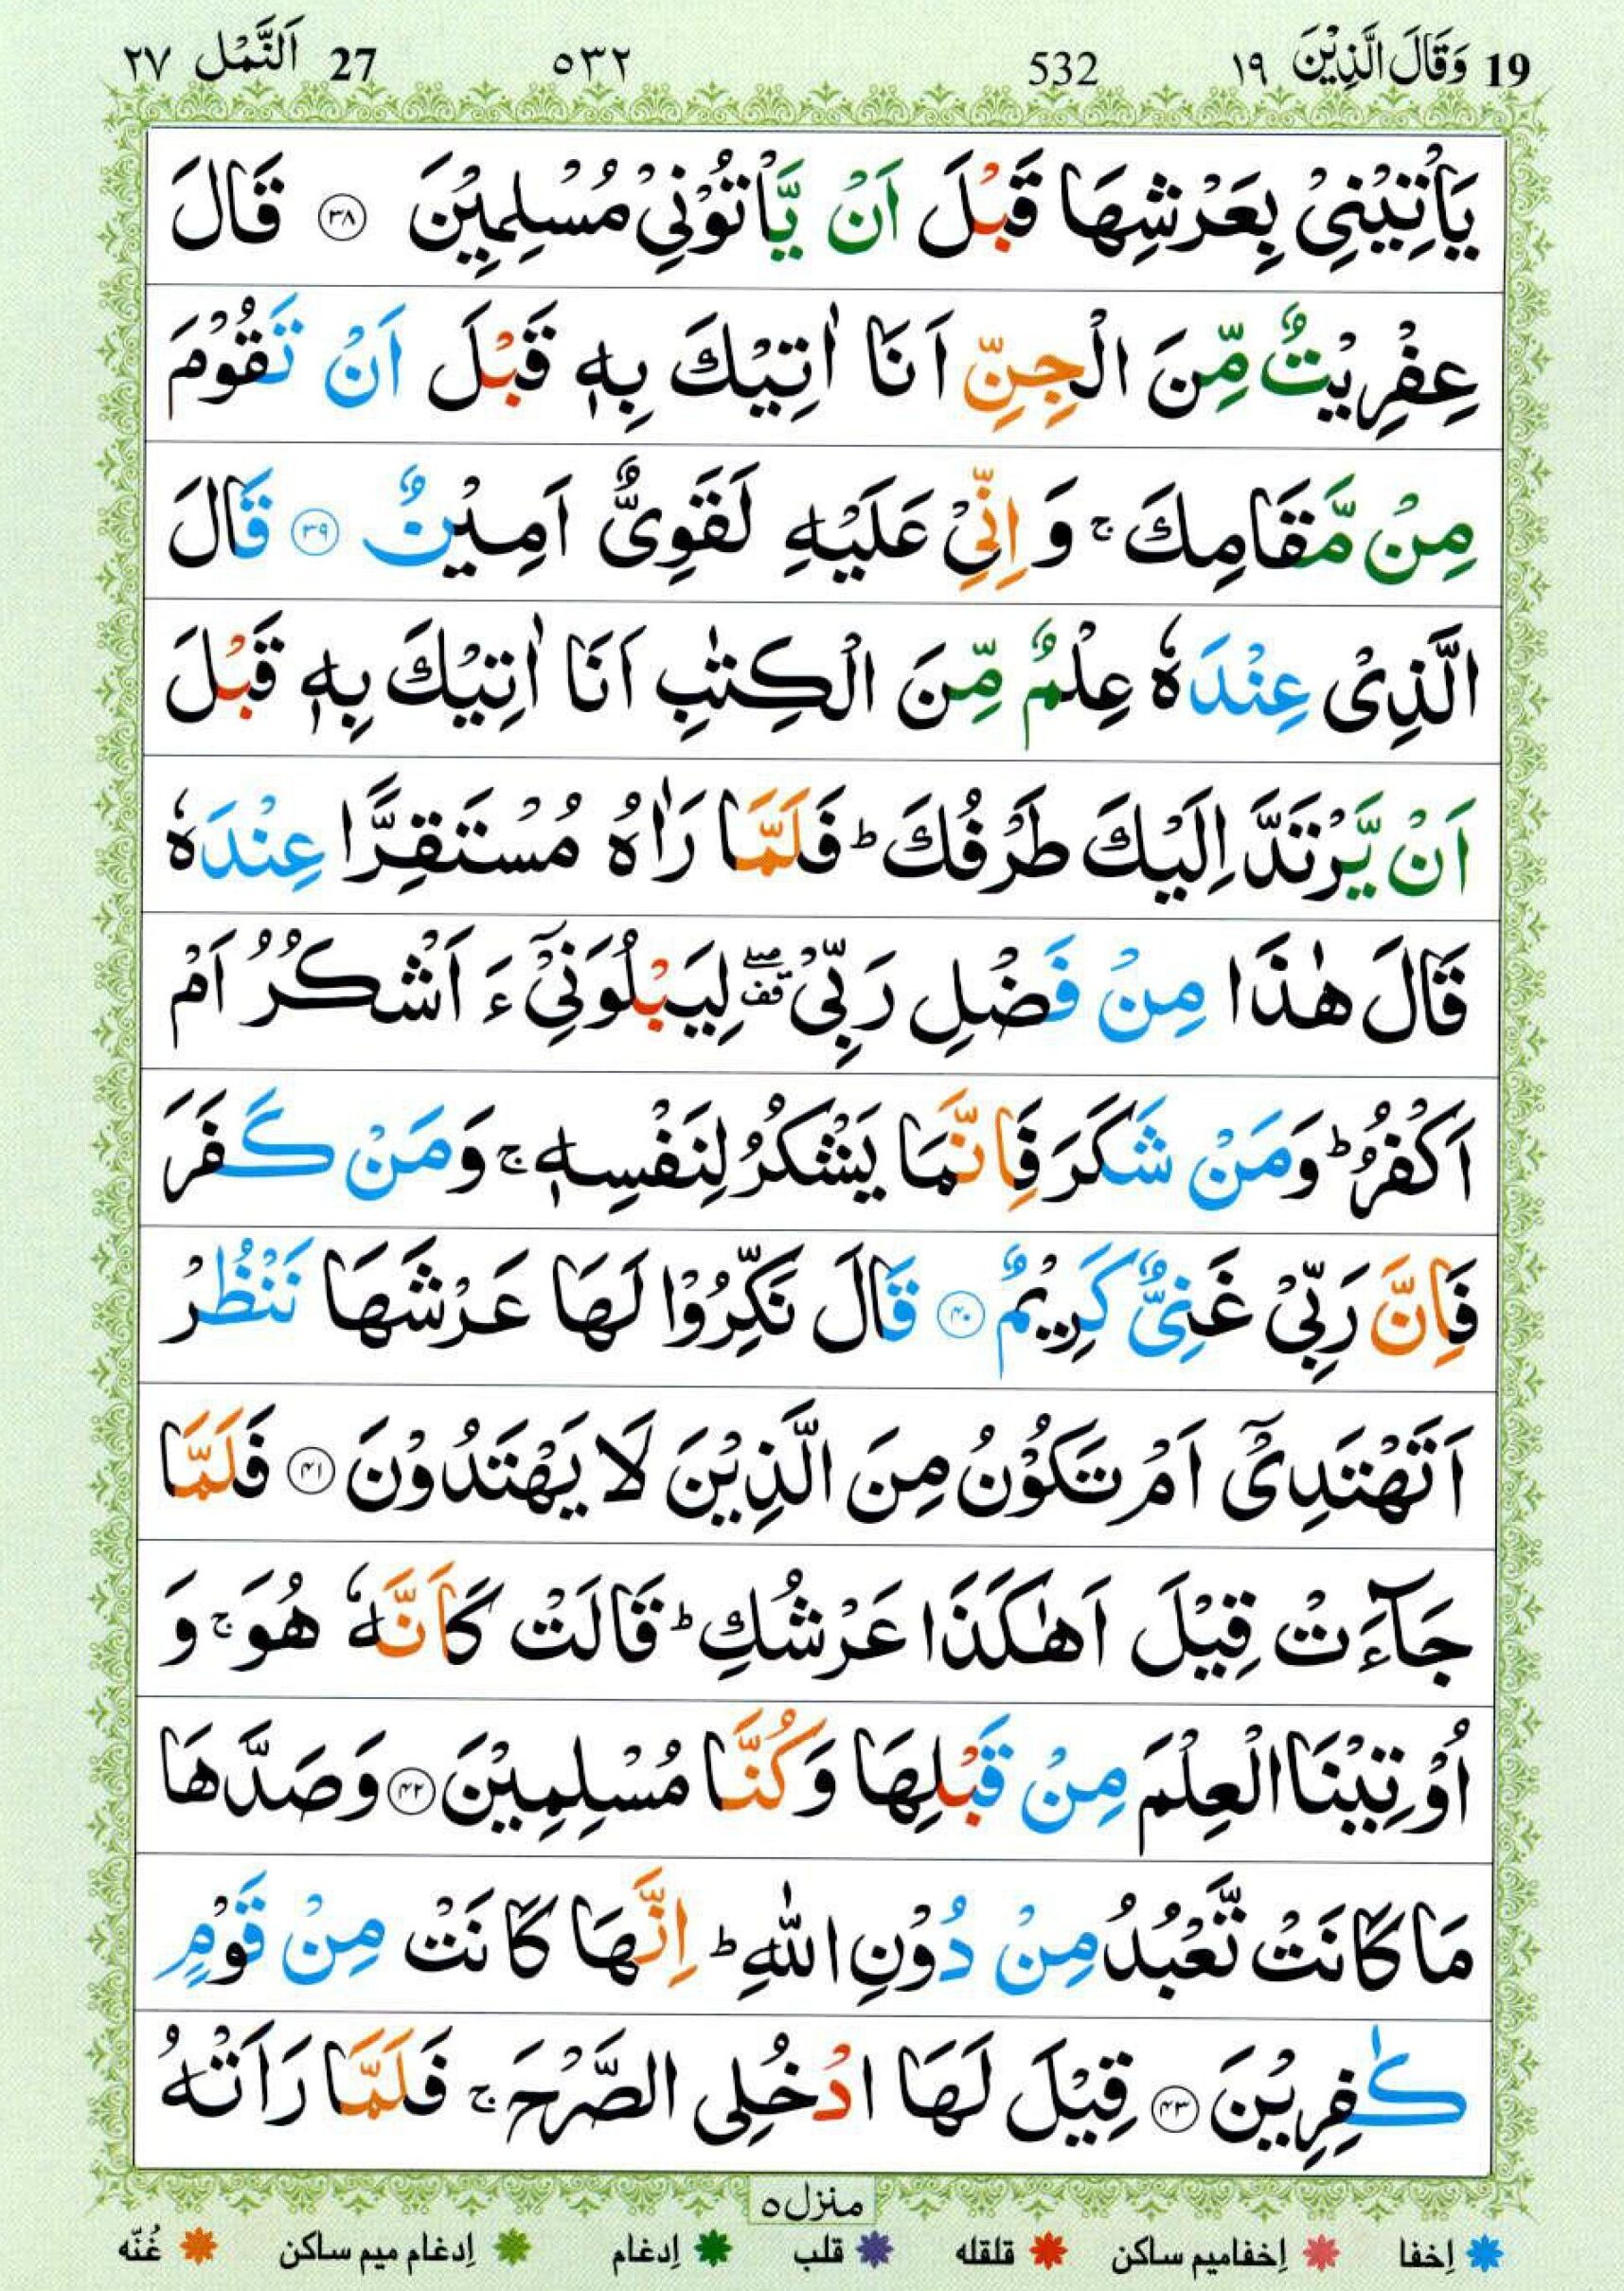 19 وَقَالَ الَّذِيْنَ ١٩ 532 ٥٣٢ 27 اَلنَّمْل ٢٧
يَاْتِيْنِيْ بِعَرْشِهَا قَبْلَ اَنْ يَّاْتُوْنِيْ مُسْلِمِيْنَ ﴿٣٨﴾ قَالَ
عِفْرِيْتٌ مِّنَ الْجِنِّ اَنَا اٰتِيْكَ بِهٖ قَبْلَ اَنْ تَقُوْمَ
مِنْ مَّقَامِكَ ۚ وَ اِنِّيْ عَلَيْهِ لَقَوِيٌّ اَمِيْنٌ ﴿٣٩﴾ قَالَ
الَّذِيْ عِنْدَهٗ عِلْمٌ مِّنَ الْكِتٰبِ اَنَا اٰتِيْكَ بِهٖ قَبْلَ
اَنْ يَّرْتَدَّ اِلَيْكَ طَرْفُكَ ؕ فَلَمَّا رَاٰهُ مُسْتَقِرًّا عِنْدَهٗ
قَالَ هٰذَا مِنْ فَضْلِ رَبِّيْ ۖ قف لِيَبْلُوَنِيْٓ ءَاَشْكُرُ اَمْ
اَكْفُرُ ؕ وَمَنْ شَكَرَ فَاِنَّمَا يَشْكُرُ لِنَفْسِهٖ ۚ وَمَنْ كَفَرَ
فَاِنَّ رَبِّيْ غَنِيٌّ كَرِيْمٌ ﴿٤٠﴾ قَالَ نَكِّرُوْا لَهَا عَرْشَهَا نَنْظُرْ
اَتَهْتَدِيْٓ اَمْ تَكُوْنُ مِنَ الَّذِيْنَ لَا يَهْتَدُوْنَ ﴿٤١﴾ فَلَمَّا
جَآءَتْ قِيْلَ اَهٰكَذَا عَرْشُكِ ؕ قَالَتْ كَاَنَّهٗ هُوَ ۚ وَ
اُوْتِيْنَا الْعِلْمَ مِنْ قَبْلِهَا وَكُنَّا مُسْلِمِيْنَ ﴿٤٢﴾ وَصَدَّهَا
مَا كَانَتْ تَّعْبُدُ مِنْ دُوْنِ اللّٰهِ ؕ اِنَّهَا كَانَتْ مِنْ قَوْمٍ
كٰفِرِيْنَ ﴿٤٣﴾ قِيْلَ لَهَا ادْخُلِي الصَّرْحَ ۚ فَلَمَّا رَاَتْهُ
منزل ٥
إخفا إخفاميم ساكن قلقله قلب إدغام إدغام ميم ساكن غُنّه